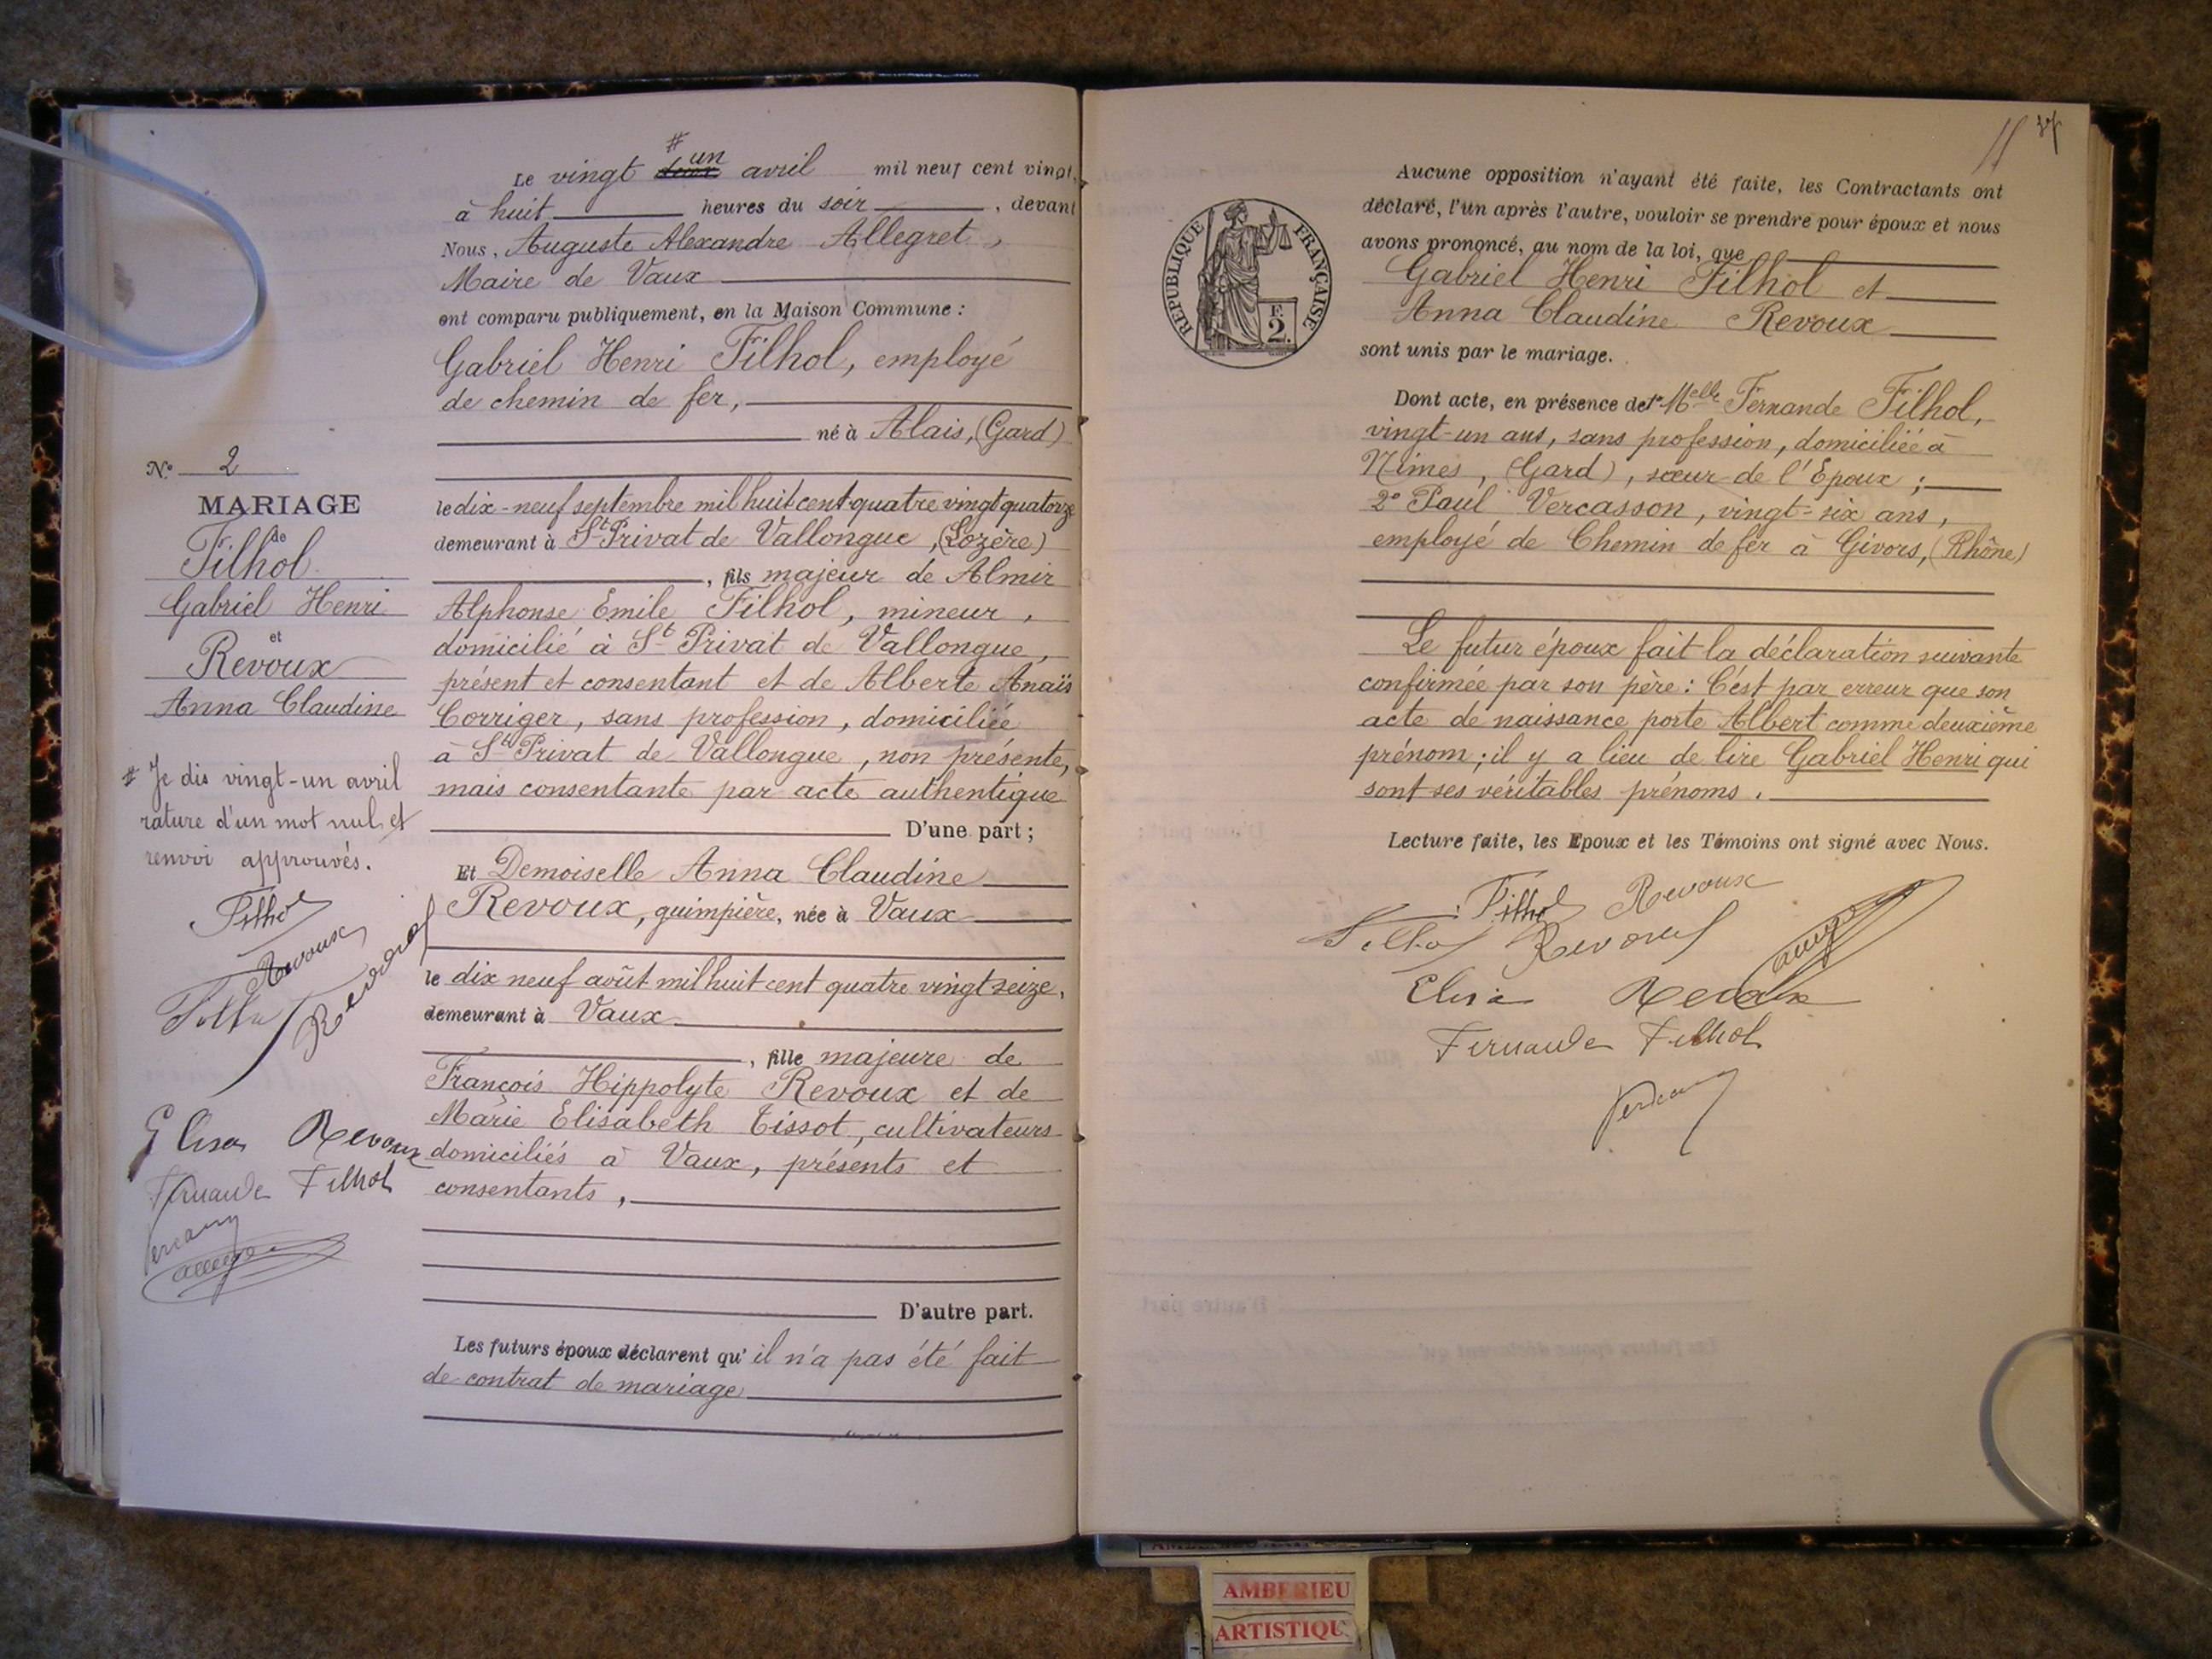 # un
Le vingt deux avril mil neuf cent vingt,
à huit heures du soir, devant
Nous, Auguste Alexandre Allegret,
Maire de Vaux
ont comparu publiquement, en la Maison Commune :
Gabriel Henri Filhol, employé
de chemin de fer,
né à Alais, (Gard)
le dix-neuf septembre mil huit cent quatre vingt quatorze
demeurant à St Privat de Vallongue, (Lozère)
, fils majeur de Almir
Alphonse Emile Filhol, mineur,
domicilié à St Privat de Vallongue,
présent et consentant et de Alberte Anaïs
Corriger, sans profession, domiciliée
à St Privat de Vallongue, non présente,
mais consentante par acte authentique
D'une part ;
Et Demoiselle Anna Claudine
Revoux, guimpière, née à Vaux
le dix neuf août mil huit cent quatre vingt seize,
demeurant à Vaux
, fille majeure de
François Hippolyte Revoux et de
Marie Elisabeth Tissot, cultivateurs
domiciliés à Vaux, présents et
consentants,
D'autre part.
Les futurs époux déclarent qu'il n'a pas été fait
de contrat de mariage
No 2
MARIAGE
de
Filhol
Gabriel Henri
et
Revoux
Anna Claudine
# Je dis vingt-un avril
rature d'un mot nul et
renvoi approuvés.
Filhol
Revoux
Filhol
Revoux
Elisa Revoux
Fernande Filhol
REPUBLIQUE FRANÇAISE
F.
2.
Aucune opposition n'ayant été faite, les Contractants ont
déclaré, l'un après l'autre, vouloir se prendre pour époux et nous
avons prononcé, au nom de la loi, que
Gabriel Henri Filhol et
Anna Claudine Revoux
sont unis par le mariage.
Dont acte, en présence de 1° Melle Fernande Filhol,
vingt-un ans, sans profession, domiciliée à
Nîmes, (Gard), sœur de l'Epoux ;
2° Paul Vercasson, vingt-six ans,
employé de Chemin de fer à Givors, (Rhône)
Le futur époux fait la déclaration suivante
confirmée par son père : C'est par erreur que son
acte de naissance porte Albert comme deuxième
prénom ; il y a lieu de lire Gabriel Henri qui
sont ses véritables prénoms.
Lecture faite, les Epoux et les Témoins ont signé avec Nous.
Filhol Revoux
Filhol Revoux
Elisa Revoux
Fernande Filhol
AMBERIEU
ARTISTIQU